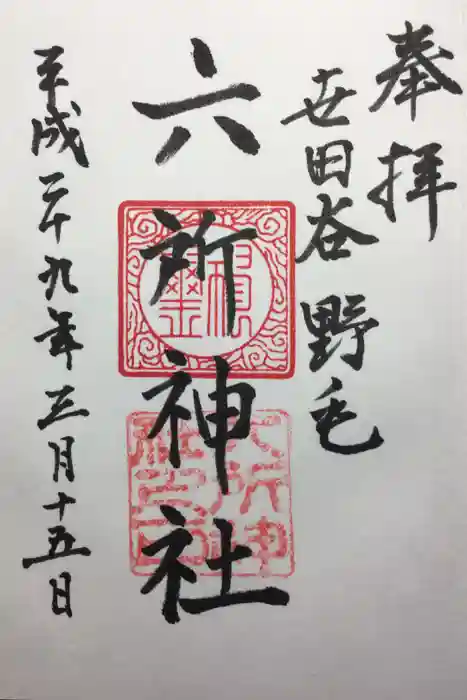 奉拝
世田谷野毛
六所神社
平成二十九年三月十五日
六所神
社之印